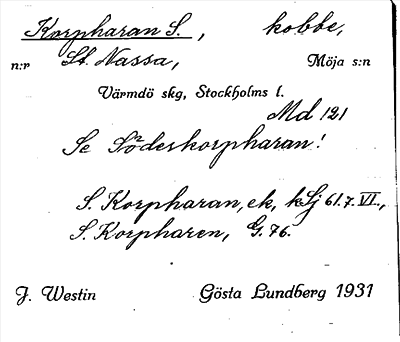 Korpharan S., kobbe,
n:r St. Nassa, Möja s:n
Värmdö skg, Stockholms l.
Md 121
Se Söderkorpharan!
S. Korpharan, ek, kSj 61.7.VI.,
S. Korpharen, G. 76.
J. Westin Gösta Lundberg 1931